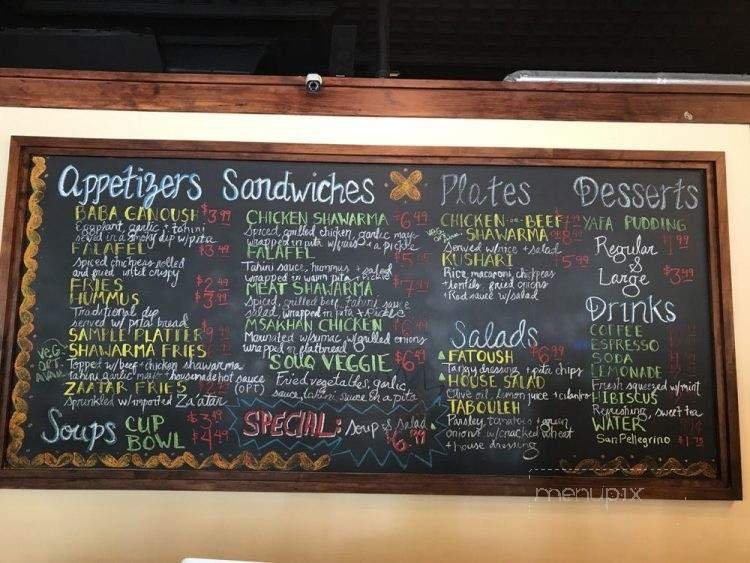 Appetizers
BABA GANOUSH $3.99
Eggplant, garlic + tahini
served in a smoky dip w/pita
FALAFEL $3.49
Spiced chickpeas rolled
and fried until crispy
FRIES $2.49
HUMMUS $3.99
Traditional dip
served w/ pita bread
SAMPLE PLATTER
SHAWARMA FRIES
VEG. OPT AVAIL
Topped w/beef + chicken shawarma
tahini, garlic mayo + housemade hot sauce (OPT)
ZAATAR FRIES
Sprinkled w/imported Za'atar
Soups CUP $3.49
BOWL $4.49
Sandwiches
CHICKEN SHAWARMA $6.49
Spiced, grilled chicken, garlic mayo
wrapped in pita w/ a pickle
FALAFEL
Tahini sauce, hummus + salad
wrapped in warm pita + Pickle
MEAT SHAWARMA
Spiced, grilled beef, tahini sauce
salad, wrapped in pita + Pickle
MSAKHAN CHICKEN
Marinated w/sumac, w/grilled onions
wrapped in flatbread
SOUQ VEGGIE $6.49
Fried vegetables, garlic,
sauce, tahini sauce on a pita
SPECIAL: soup & salad
$6.99
Plates
CHICKEN -or- BEEF
SHAWARMA
Served w/rice + salad
KUSHARI $5.99
Rice, macaroni, chickpeas
+ lentils, fried onions
+ Red sauce w/salad
Salads
FATOUSH $6.99
Tangy dressing + pita chips
HOUSE SALAD
Olive oil, lemon juice + cilantro
TABOULEH
Parsley, tomatoes + green
onions w/cracked wheat
+ house dressing
Desserts
YAFA PUDDING
Regular $1.99
&
Large $3.99
Drinks
COFFEE
ESPRESSO
SODA
LEMONADE
Fresh squeezed w/mint
HIBISCUS
Refreshing, sweet tea
WATER
San Pellegrino $1.75
menupix